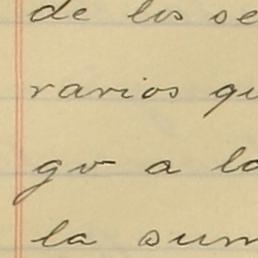 de los se
rarios qu
go a la
la sum